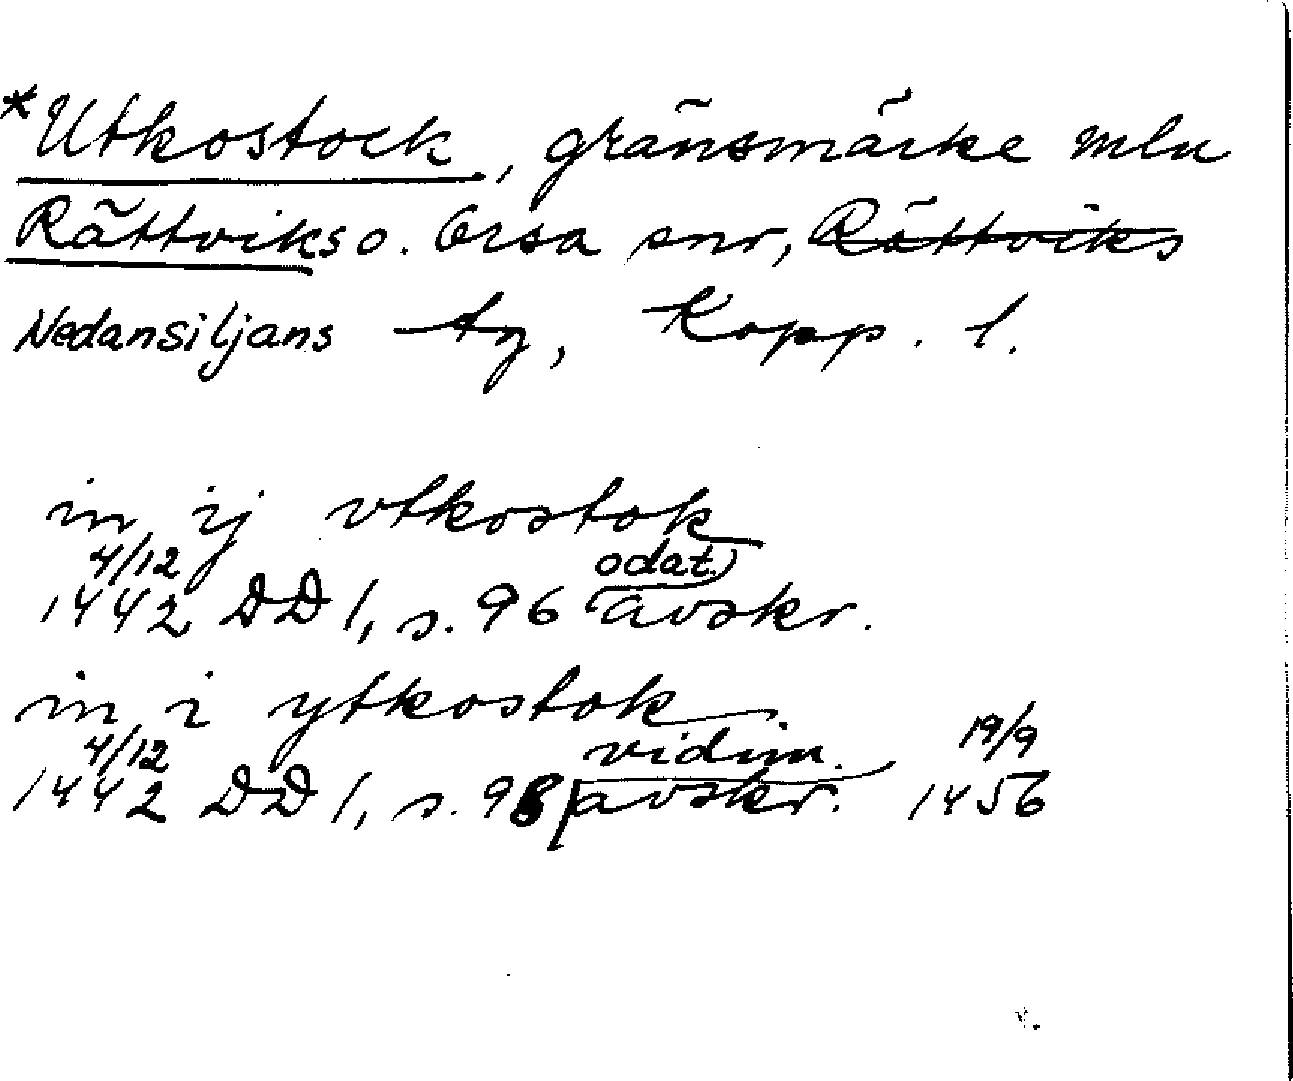 *Utkostock, gränsmärke mln
Rättviks o. Orsa snr, Rättviks
Nedansiljans tg, Kopp. l.
in ij vtkostok
4/12 odat.
1442 DD 1, s. 96 avskr.
in i ytkostok
4/12 vidim. 19/9
1442 DD 1, s. 98 avskr. 1456